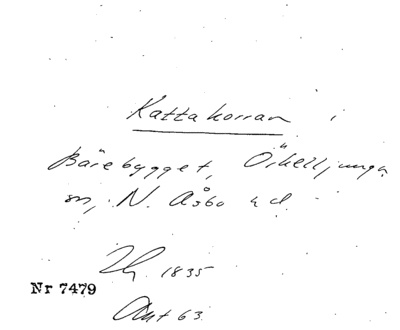 Kattakorran i
Bärebygget, Örkelljunga
sn, N. Åsbo hd.
1835
Nr 7479
Akt 63.